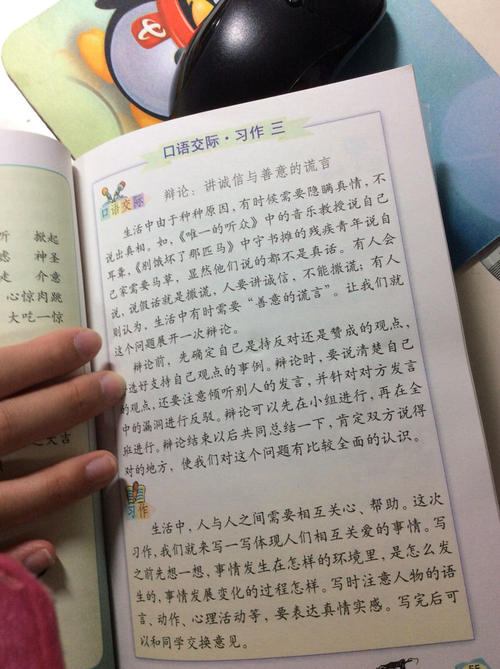 口语交际·习作 三
口语交际
辩论：讲诚信与善意的谎言
生活中由于种种原因，有时候需要隐瞒真情，不
说出真相。如，《唯一的听众》中的音乐教授说自己
耳聋，《别饿坏了那匹马》中守书摊的残疾青年说自
己家需要马草，显然他们说的都不是真话。有人会
说，说假话就是撒谎，人要讲诚信，不能撒谎；有人
则认为，生活中有时需要“善意的谎言”。让我们就
这个问题展开一次辩论。
辩论前，先确定自己是持反对还是赞成的观点，
选好支持自己观点的事例。辩论时，要说清楚自己
的观点，还要注意倾听别人的发言，并针对对方发言
中的漏洞进行反驳。辩论可以先在小组进行，再在全
班进行。辩论结束以后共同总结一下，肯定双方说得
对的地方，使我们对这个问题有比较全面的认识。
习作
生活中，人与人之间需要相互关心、帮助。这次
习作，我们就来写一写体现人们相互关爱的事情。写
之前先想一想，事情发生在怎样的环境里，是怎么发
生的，事情发展变化的过程怎样。写时注意人物的语
言、动作、心理活动等，要表达真情实感。写完后可
以和同学交换意见。
55
听 掀起
神圣
走 介意
心惊肉跳
大吃一惊
大吉